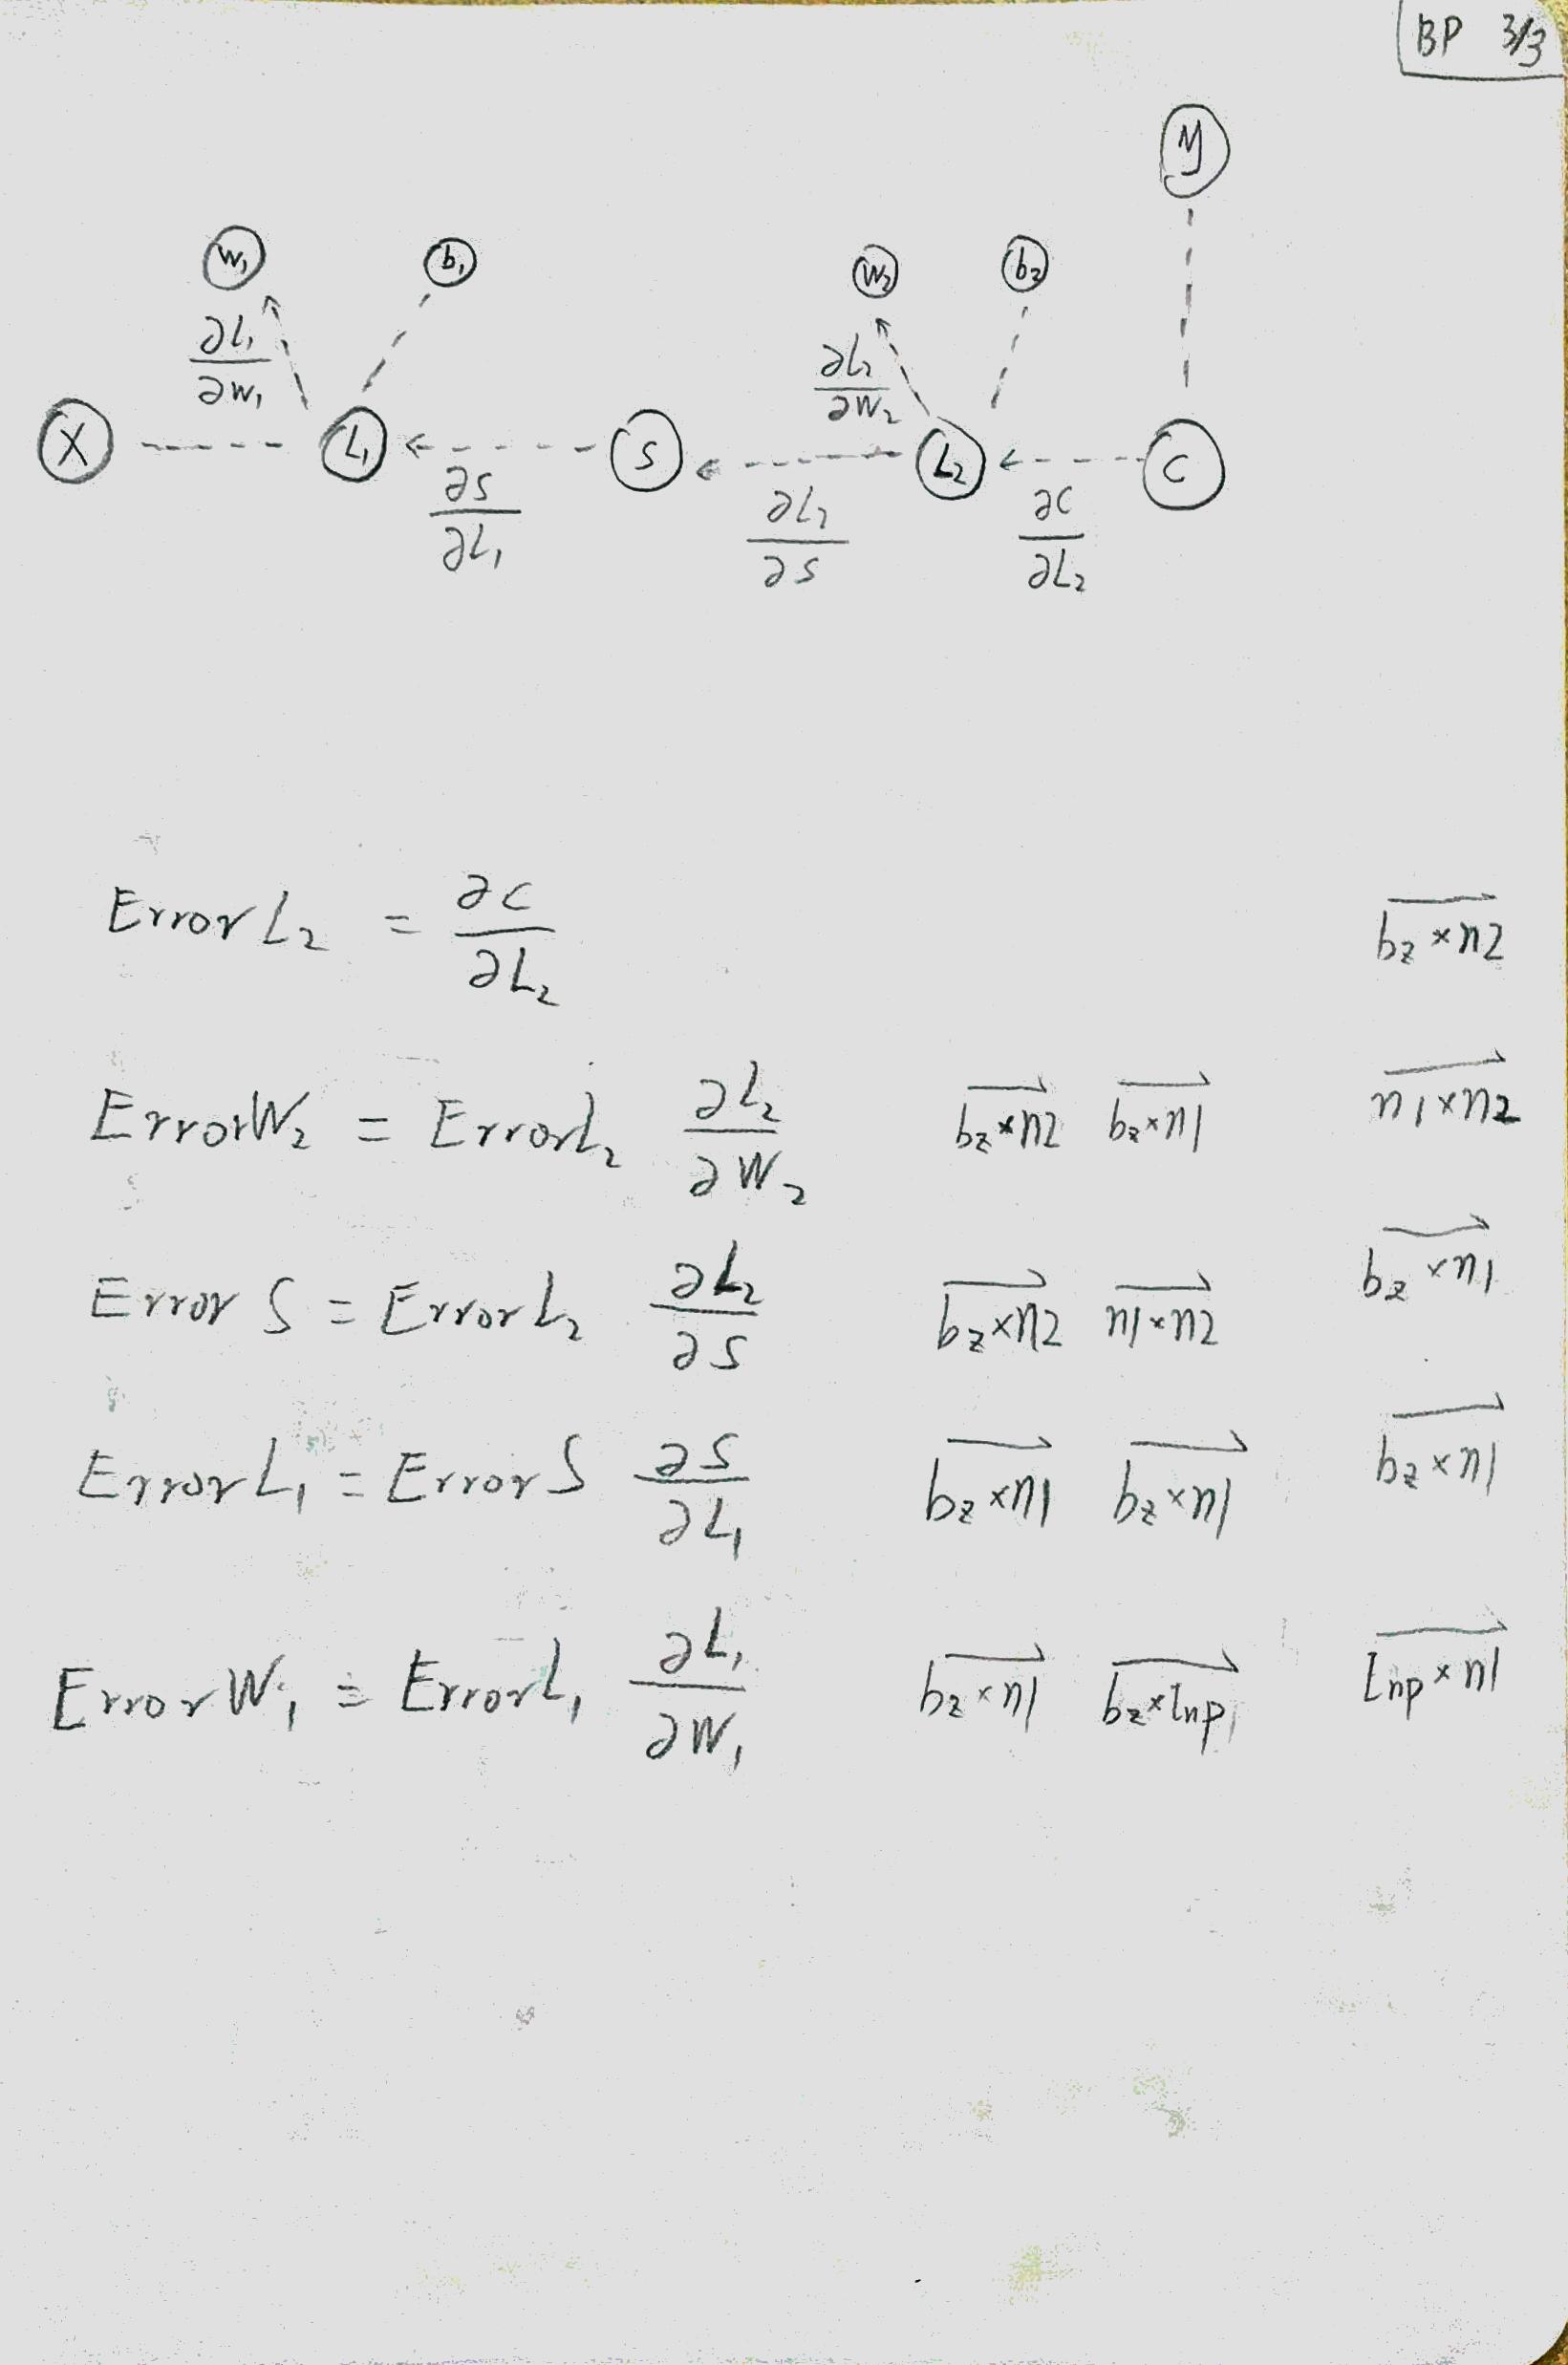 BP 3/3
y
W₁ b₁ W₂ b₂
∂L₁/∂W₁ ∂L₂/∂W₂
X L₁ S L₂ C
∂S/∂L₁ ∂L₂/∂S ∂C/∂L₂
Error L₂ = ∂C/∂L₂ bz×n2
Error W₂ = Error L₂ ∂L₂/∂W₂ bz×n2 bz×n1 n1×n2
Error S = Error L₂ ∂L₂/∂S bz×n2 n1×n2 bz×n1
Error L₁ = Error S ∂S/∂L₁ bz×n1 bz×n1 bz×n1
Error W₁ = Error L₁ ∂L₁/∂W₁ bz×n1 bz×Inp Inp×n1